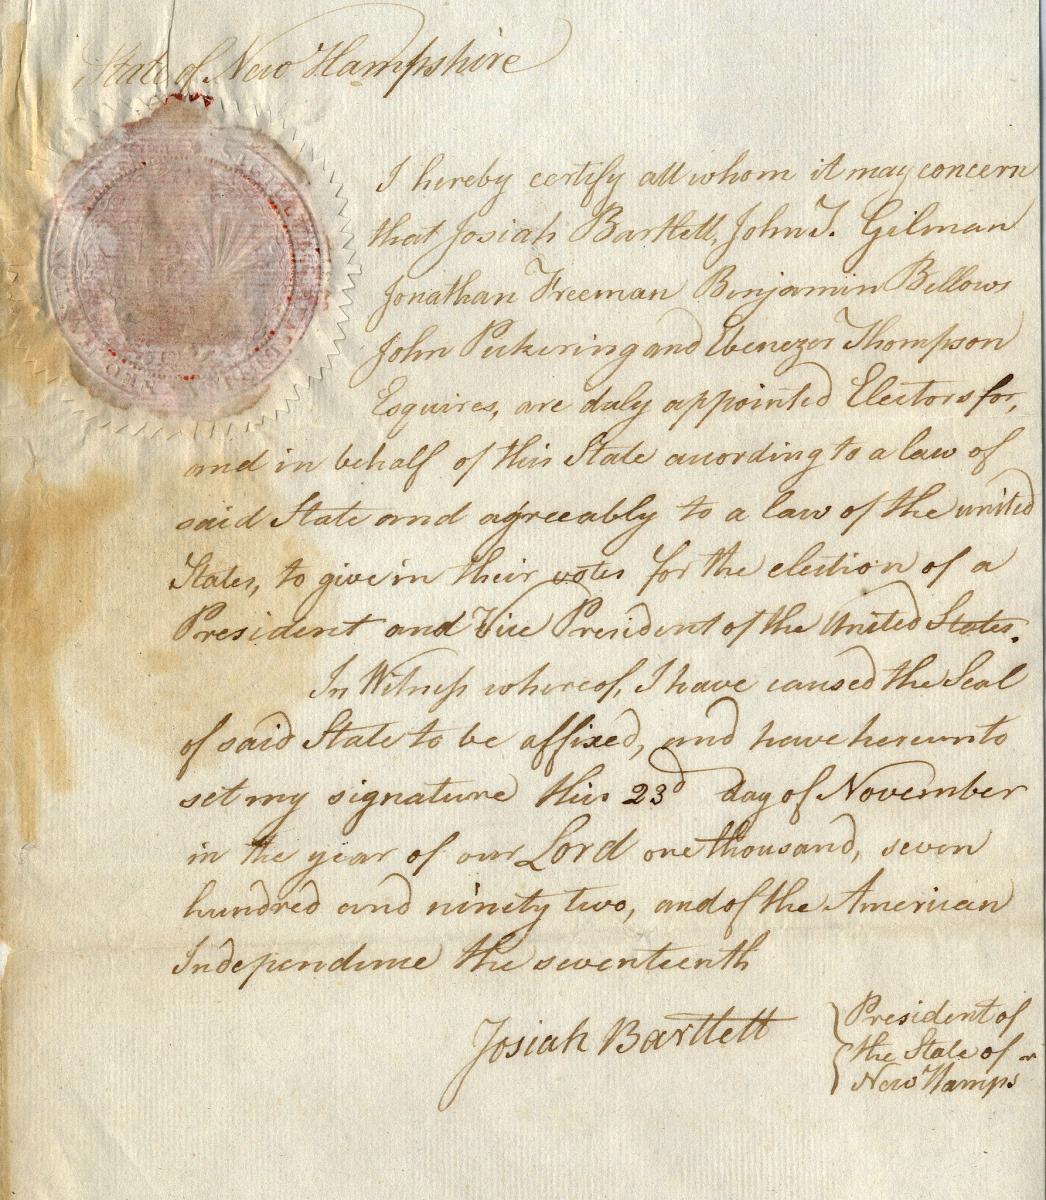 State of New Hampshire
I hereby certify all whom it may concern
that Josiah Bartlett, John T. Gilman
Jonathan Freeman Benjamin Bellows
John Pickering and Ebenezer Thompson
Esquires, are duly appointed Electors for,
and in behalf of this State according to a law of
said State and agreeably to a law of the united
States, to give in their votes for the election of a
President and Vice President of the United States.
In Witness whereof, I have caused the Seal
of said State to be affixed, and have hereunto
set my signature this 23d day of November
in the year of our Lord one thousand, seven
hundred and ninety two, and of the American
Independence the seventeenth
Josiah Bartlett
President of
the State of
New Hampsr